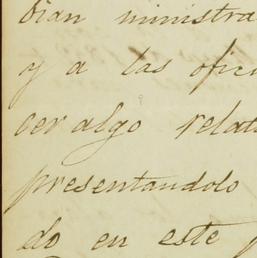 bian ministra
y a las ofici
cer algo relat
presentandolo
do en este p